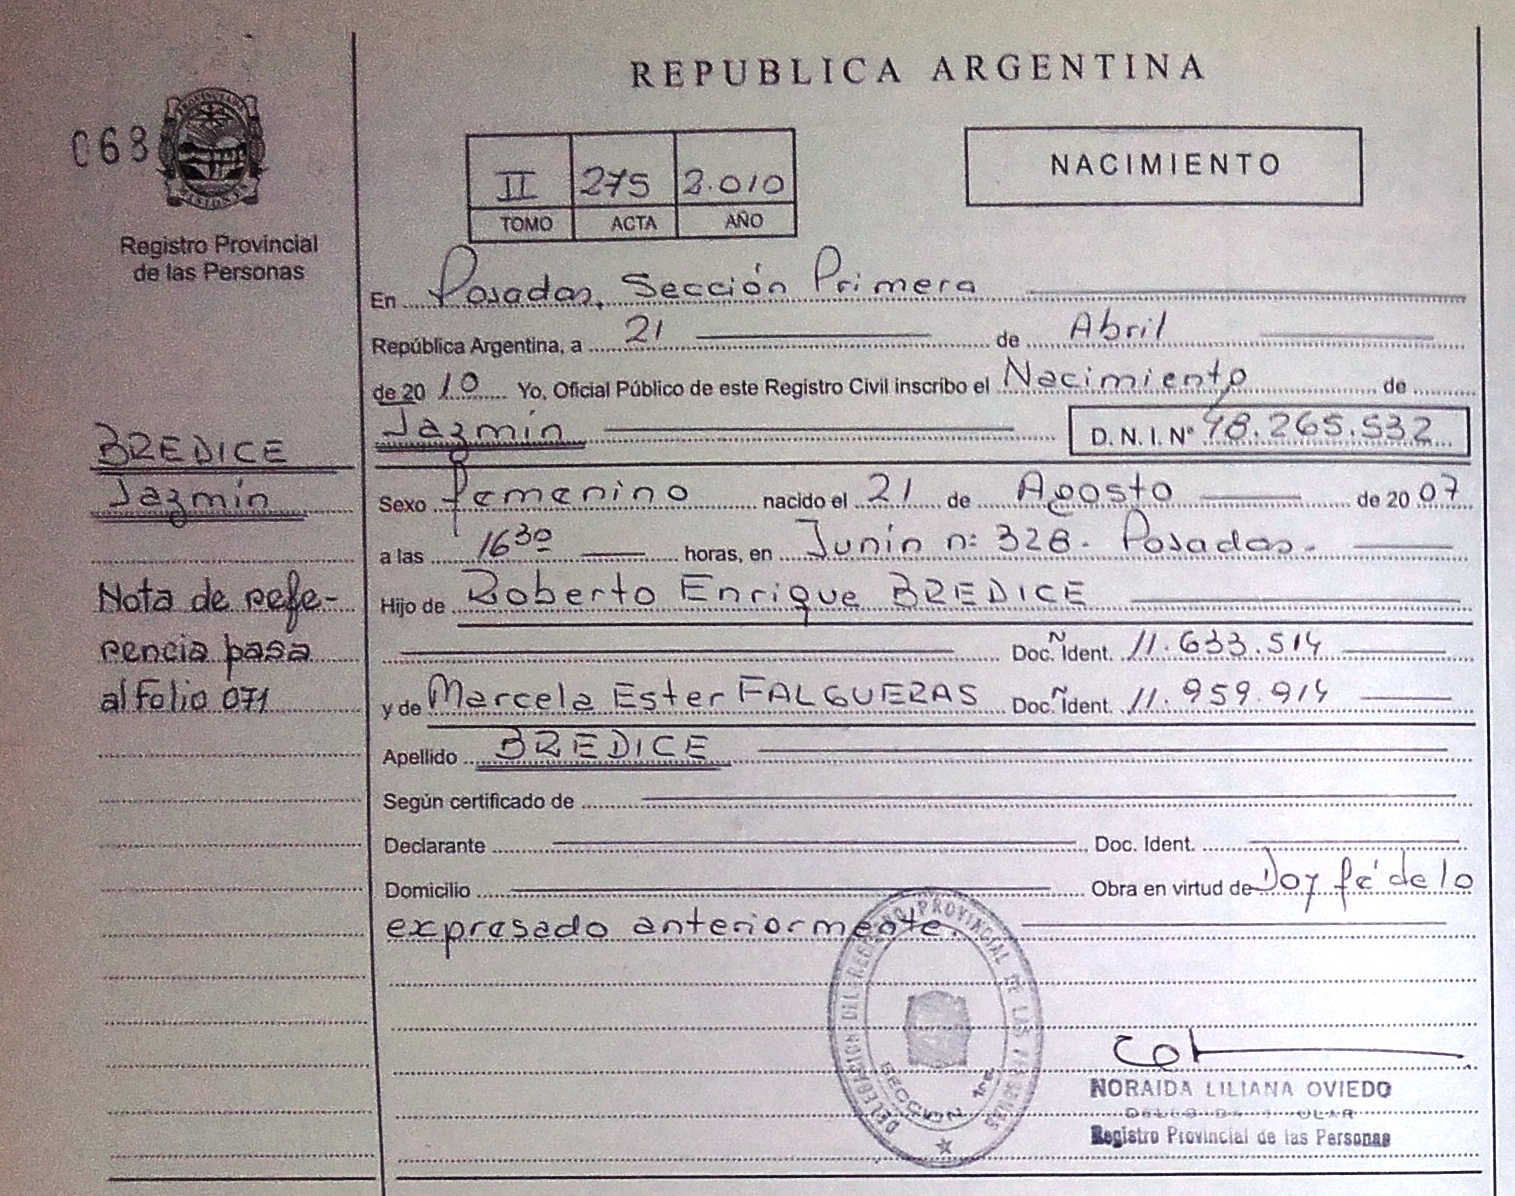 REPUBLICA ARGENTINA
068
NACIMIENTO
II 275 2.010
TOMO ACTA AÑO
Registro Provincial
de las Personas
En Posadas, Sección Primera
República Argentina, a 21 de Abril
de 20 10 Yo, Oficial Público de este Registro Civil inscribo el Nacimiento de
Jazmín D.N.I.Nº 48.265.532
BREDICE
Jazmín
Sexo femenino nacido el 21 de Agosto de 20 07
a las 16³⁰ horas, en Junín n: 328. Posadas.
Nota de refe-
rencia pasa
al Folio 071
Hijo de Roberto Enrique BREDICE
Doc. Ñ Ident. 11.633.514
y de Marcela Ester FALGUERAS Doc. Ñ Ident. 11.959.914
Apellido BREDICE
Según certificado de
Declarante Doc. Ident.
Domicilio Obra en virtud de Doy fé de lo
expresado anteriormente.
DELEGACION DEL REGISTRO PROVINCIAL DE LAS PERSONAS
SECCION 1ra
NORAIDA LILIANA OVIEDO
Registro Provincial de las Personas